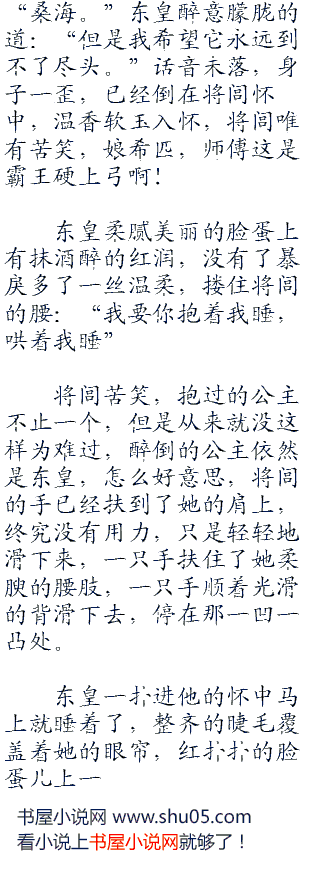 “桑海。”东皇醉意朦胧的
道：“但是我希望它永远到
不了尽头。”话音未落，身
子一歪，已经倒在将闾怀
中，温香软玉入怀，将闾唯
有苦笑，娘希匹，师傅这是
霸王硬上弓啊！
东皇柔腻美丽的脸蛋上
有抹酒醉的红润，没有了暴
戾多了一丝温柔，搂住将闾
的腰：“我要你抱着我睡，
哄着我睡”
将闾苦笑，抱过的公主
不止一个，但是从来就没这
样为难过，醉倒的公主依然
是东皇，怎么好意思，将闾
的手已经扶到了她的肩上，
终究没有用力，只是轻轻地
滑下来，一只手扶住了她柔
腴的腰肢，一只手顺着光滑
的背滑下去，停在那一凹一
凸处。
东皇一扑进他的怀中马
上就睡着了，整齐的睫毛覆
盖着她的眼帘，红扑扑的脸
蛋儿上一
书屋小说网 www.shu05.com
看小说上书屋小说网就够了！